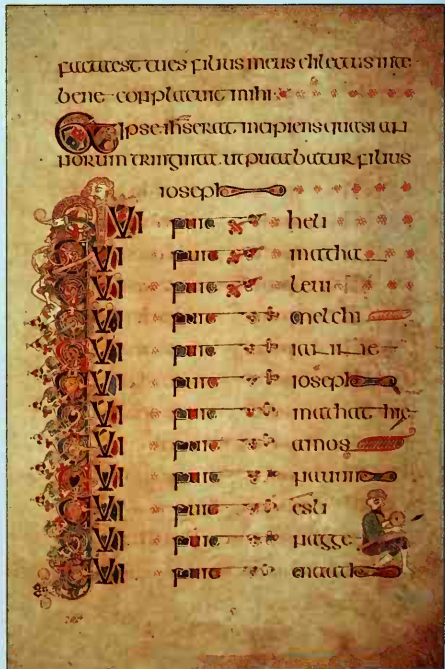 facta est tu es filius meus dilectus in te
bene conplacuit mihi
Et ipse ihs erat incipiens quasi an
norum triginta ut putabatur filius
ioseph
QUI fuit heli
QUI fuit matha
QUI fuit levi
QUI fuit melchi
QUI fuit iannae
QUI fuit ioseph
QUI fuit mathathie
QUI fuit amos
QUI fuit nauum
QUI fuit esli
QUI fuit nagge
QUI fuit maath